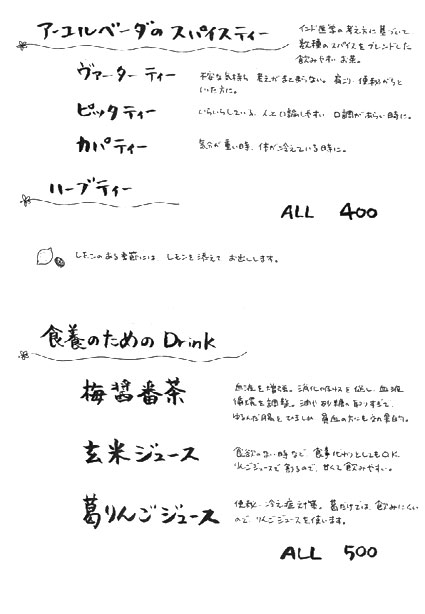 アーユルベーダの スパイスティー
インド医学の考え方に基づいて
数種のスパイスをブレンドした
飲みやすいお茶。
ヴァーター ティー
不安な気持ち 考えがまとまらない。 肩こり 便秘がちと
いった方に。
ピッタ ティー
いらいらしている、人と口論しやすい 口調があらい時に。
カパ ティー
気分が重い時、体が冷えている時に。
ハーブ ティー
ALL 400
レモンのある季節には レモンを添えて お出しします。
食養のための Drink
梅醤番茶
血液を増強。消化吸収を促し、血液
循環を調整。油や砂糖の取りすぎで
ゆるんだ腸をひきしめ 貧血の方にも効果的。
玄米ジュース
食欲のない時など 食事代わりとしてもOK
りんごジュースで割るので、甘くて飲みやすい。
葛りんごジュース
便秘・冷え症対策。 葛だけでは、飲みにくい
ので、りんごジュースを使います。
ALL 500